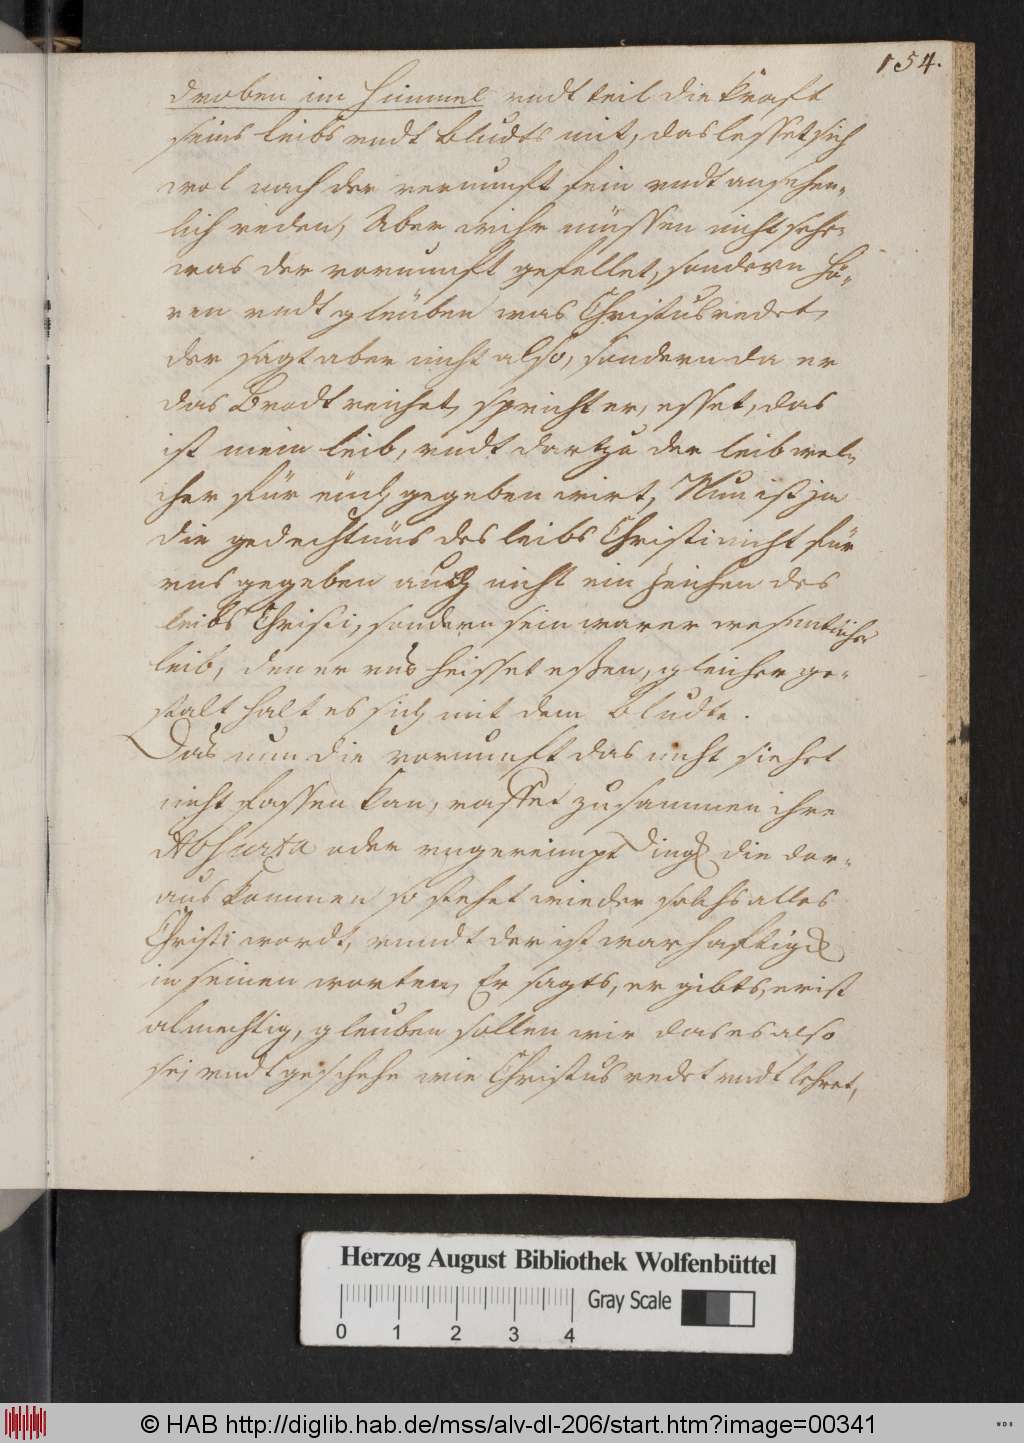 154.
droben im Himmel vndt teil die krafft
seins leibs vndt bludts mit, das lesset sich
wol nach der vernunfft fein vndt ansehen-
lich reden, Aber wihr müssen nicht sehe-
was der vornunfft gefellet, sondern hö-
ren vndt gleuben was Christus redet,
der sagt aber nicht also, sondern da er
das Brodt reichet, spricht er, esset, das
ist mein leib, vndt dartzu der leib wel-
cher für euch gegeben wirt, Nun ist ja
die gedechtnüs des leibs Christi nicht für
vns gegeben auch nicht ein zeichen des
leibs Christi, sondern sein warer wesentlicher
leib, den er vns heisset eßen, gleicher ge-
stalt halt es sich mit dem bludte.
Das nun die vornunfft das nicht siehet
nicht fassen kan, rasset zusammen ihre
Absurta oder vngereimpt ding die dar-
aus kommen so stehet wieder solchs alles
Christi wordt, vnndt der ist warhafftig
in seinen worten, Er sagts, er gibts, er ist
almechtig, gleuben sollen wir das es also
sej vndt geschehe wie Christus redet vndt lehret,
Herzog August Bibliothek Wolfenbüttel
0 1 2 3 4 Gray Scale
© HAB http://diglib.hab.de/mss/alv-dl-206/start.htm?image=00341